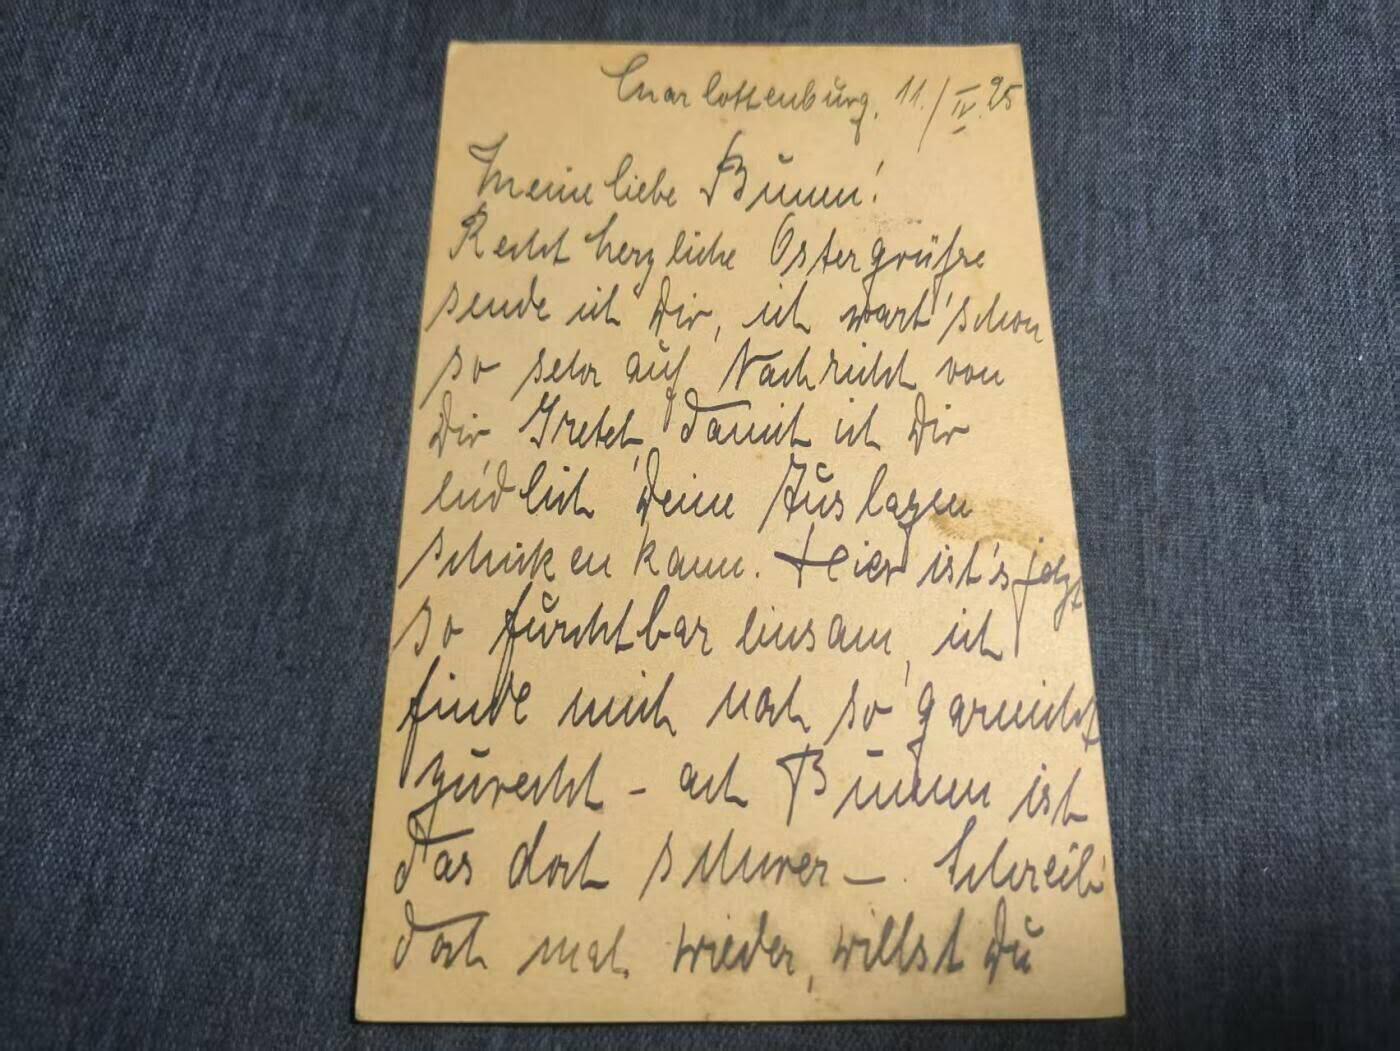 Charlottenburg, 11./IV.25
Meine liebe Bumm!
Recht herzliche Ostergrüße
sende ich Dir, ich wart' schon
so sehr auf Nachricht von
Dir Gretch, damit ich Dir
endlich Deine Auslagen
schicken kann. Hier ist's jetzt
so furchtbar einsam, ich
finde mich noch so garnicht
zurecht – ach Bumm ist
das doch schwer –. Schreib'
doch mal wieder, willst Du